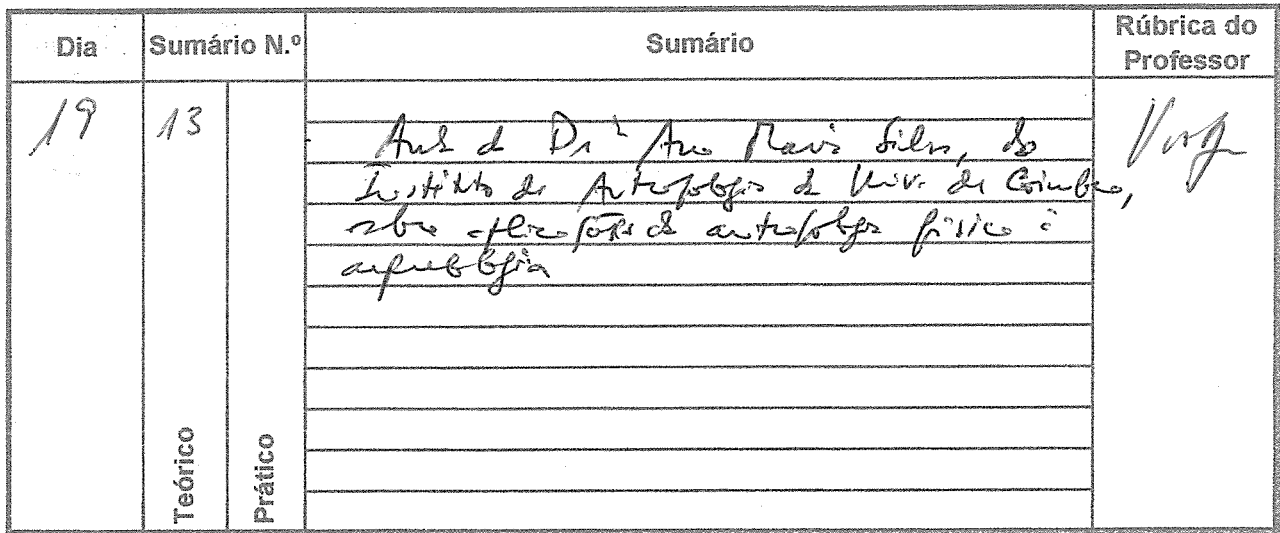 Dia
Sumário N.º
Sumário
Rúbrica do
Professor
19
13
Aula da Drª Ana Maria Silva, do
Instituto de Antropologia da Univ. de Coimbra,
sobre aplicações da antropologia física à
arqueologia
Teórico
Prático